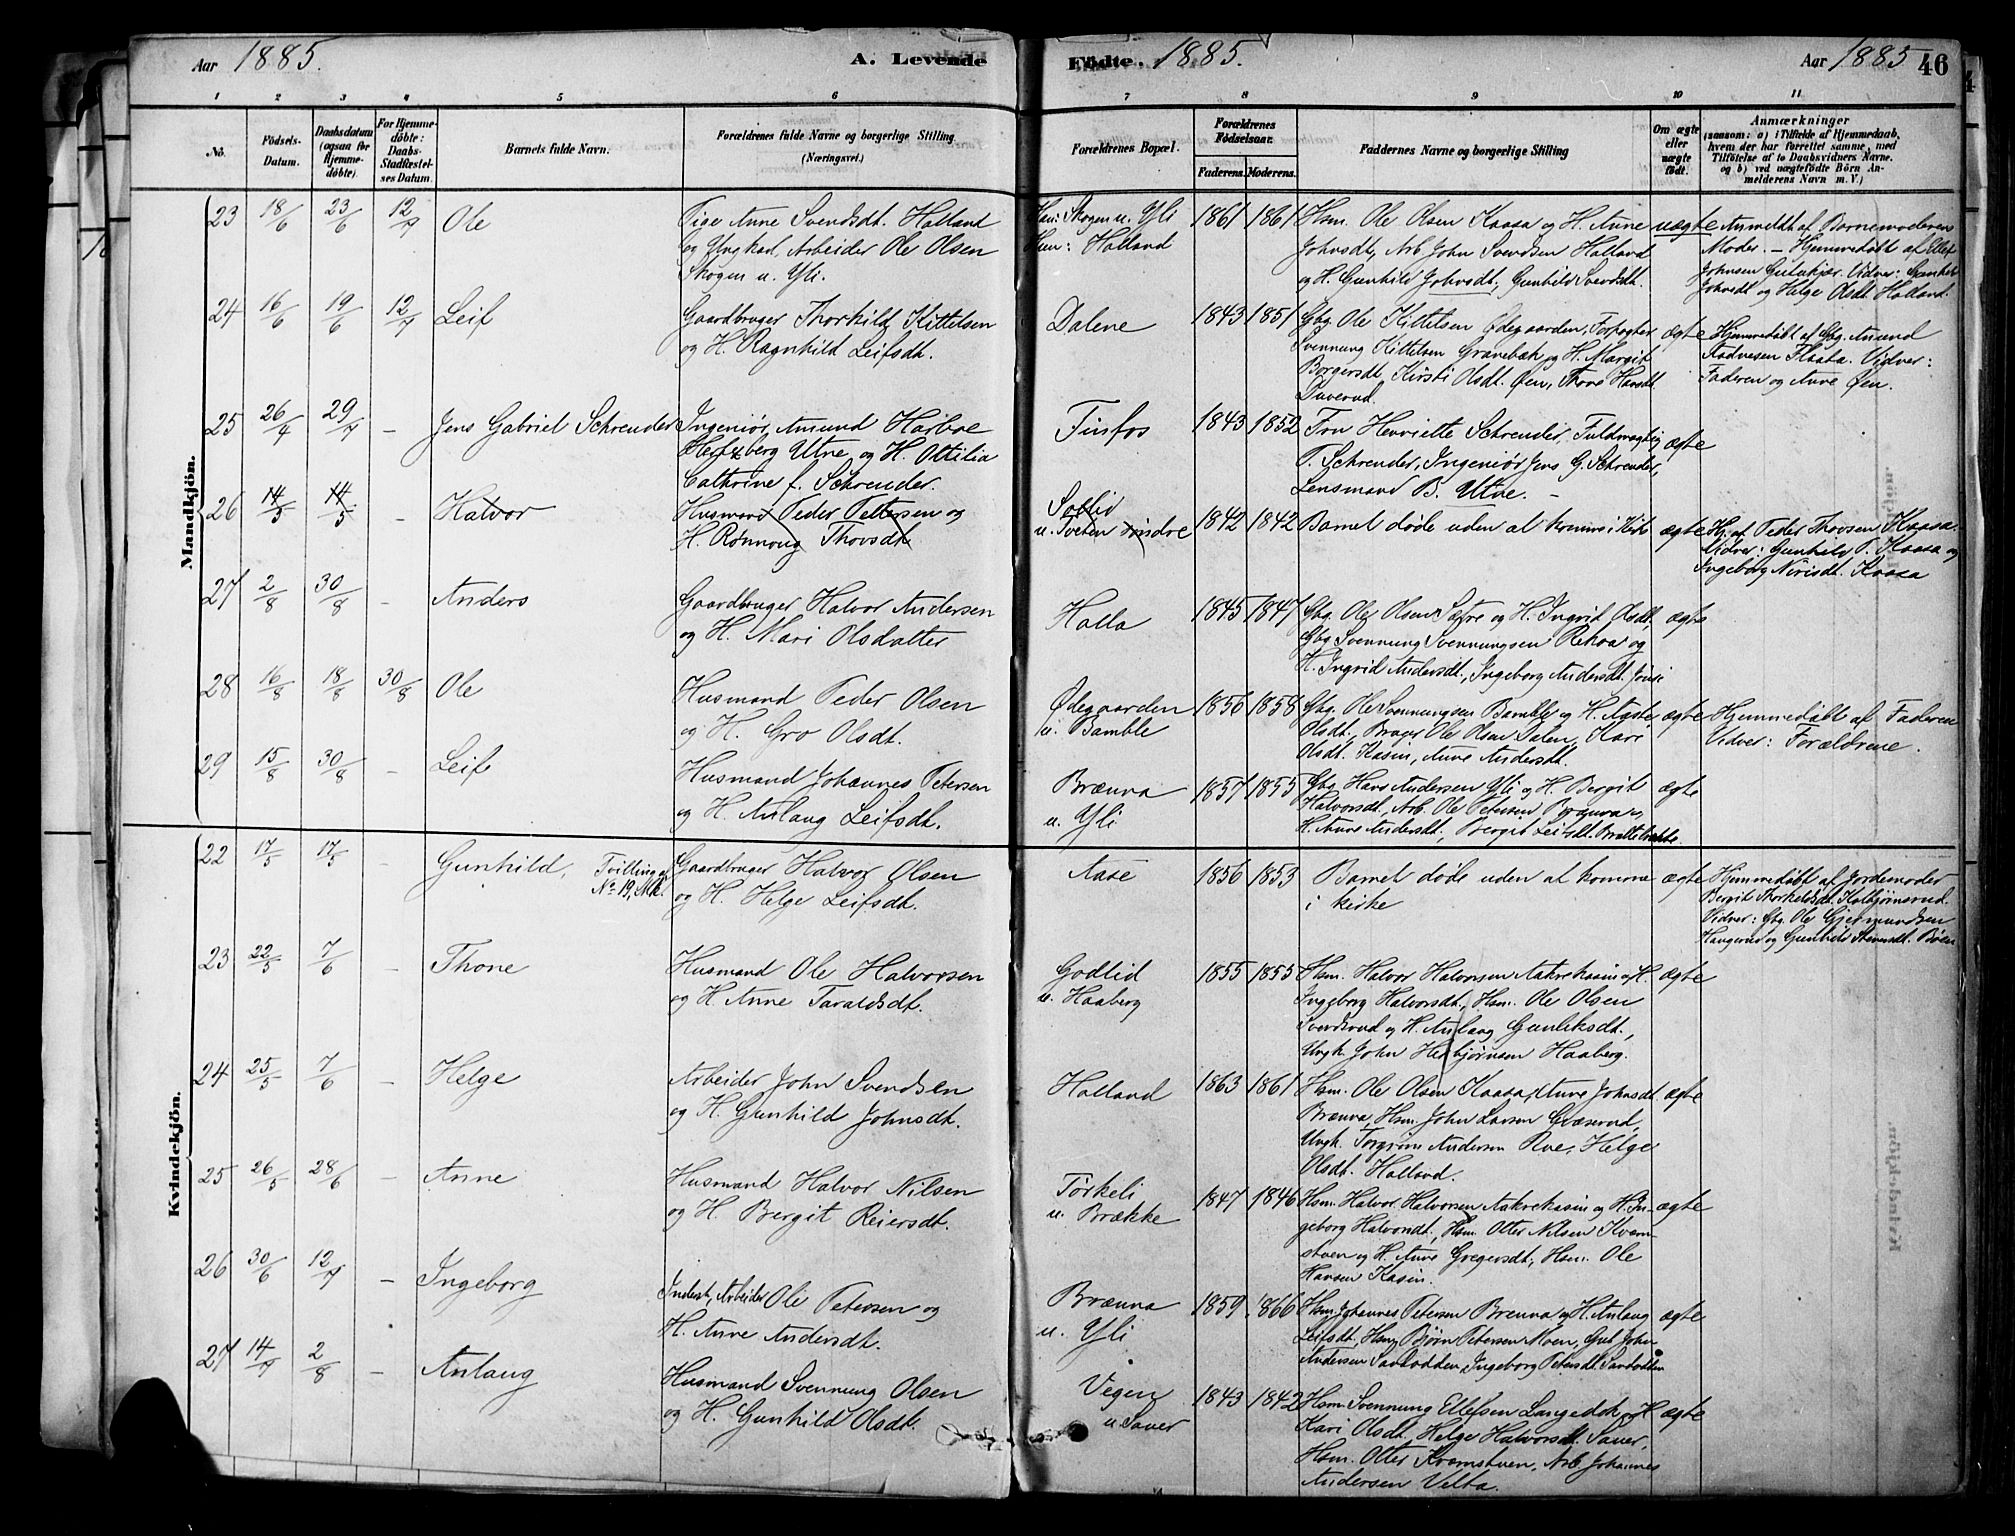 Aar 1885. A. Levende Födte. 1885. Aar 1885 46
1 2 3 4 5 6 7 8 9 10 11
No. Födsels-Datum. Daabsdatum (ogsaa for Hjemmedöbte). For Hjemmedöbte: Daabs-Stadfæstelses Datum. Barnets fulde Navn. Forældrenes fulde Navne og borgerlige Stilling (Næringsvei.) Forældrenes Bopæl. Forældrenes Födselsaar. Faderens. Moderens. Faddernes Navne og borgerlige Stilling Om ægte eller uægte födt. Anmærkninger (saasom: a) i Tilfælde af Hjemmedaab, hvem der har forrettet samme, med Tilföielse af to Daabsvidners Navne. og b) ved uægtefödte Börn Anmelderens Navn m. V.)
Mandkjön.
23 18/6 23/6 12/7 Ole
Pige Anne Svendsdt. Holland
og Ungkarl, Arbeider Ole Olsen
Skogen u. Yli.
Ham: Skogen u. Yli
Hun: Holland
1861 1861
Hsm. Ole Olsen Kaasa og H. Anne
Johnsdt, Arb. John Svendsen Holland
og H. Gunhild Johnsdt, Gunhild Svendsdt.
uægte
Anmeldt af Barnemoderens
Moder. — Hjemmedöbt af Ellef
Johnsen Vidner: Gunhild
Johnsdt og Helge Olsdt. Holland.
24 16/6 19/6 12/7 Leif
Gaardbruger Thorkild Kittelsen
og H. Ragnhild Leifsdt.
Dalene
1843 1851
Gbg. Ole Kittelsen Ødegaarden, Forpagter
Svennung Kittelsen Gravebæk og H. Margit
Borgersdt, Kirsti Olsdt. Øen, Thone Hansdt.
ægte
Hjemmedöbt af Gbg. Amund
Flaata. Vidner:
Faderen og Anne Øen.
25 26/4 29/7 - Jens Gabriel Schreuder
Ingeniör Amund Harboe
Hertzberg Utne og H. Ottilia
Cathrine f. Schreuder.
Tinfos
1843 1852
Fru Henriette Schreuder, Fuldmægtig
T. Schreuder, Ingeniör Jens G. Schreuder,
Lensmand B. Utne. -
ægte
26 14/5 14/5 - Halvor
Husmand Peder Pettersen og
H. Rönnoug Thovsdt
Sollid
u. Tveten söndre
1842 1842
Barnet döde uden at komme i Kirke
ægte
Hj. af Peder Thovsen Kaasa.
Vidner: Gunhild P. Kaasa og
Ingeborg Nirisdt. Kaasa
27 2/8 30/8 - Anders
Gaardbruger Halvor Andersen
og H. Mari Olsdatter
Holla
1845 1847
Gbg. Ole Olsen og H. Ingrid Olsdt,
Gbg Svennung Svennungsen Rekaa og
H. Ingrid Andersdt., Ingeborg Andersdt.
ægte
28 16/8 18/8 30/8 Ole
Husmand Peder Olsen
og H. Gro Olsdt.
Ødegaarden
u. Bamble
1856 1858
Gbg. Ole Svennungsen Bamble og H. Aaste
Olsdt, Bruger Ole Olsen Dalen, Kari
Olsdt. Kasin, Anne Andersdt.
ægte
Hjemmedöbt af Faderen
Vidner: Forældrene.
29 15/8 30/8 - Leif
Husmand Johannes Petersen
og H. Anlaug Leifsdt.
Brænna
u. Yli
1857 1855
Gbg. Hans Andersen Yli og H. Bergit
Halvorsdt, Arb. Ole Petersen Brænna og
H. Anne Andersdt, Bergit Leifsdt. Brattebakke
ægte
Kvindekjön.
22 17/5 17/5 - Gunhild, Tvilling af
No 19, Mk.
Gaardbruger Halvor Olsen
og H. Helge Leifsdt.
Aase
1856 1853
Barnet döde uden at komme
i kirke
ægte
Hjemmedöbt af Jordemoder
Bergit Thorkildsdt. Kolbjörnsrud.
Vidner: Gbg. Ole Gjermundsen
Haugerud og Gunhild Böen
23 22/5 7/6 - Thone
Husmand Ole Halvorsen
og H. Anne Taraldsdt.
Godlid
u. Haaberg
1855 1855
Hsm. Halvor Halvorsen Aakrekasin og H.
Ingeborg Halvorsdt., Hsm. Ole Olsen
Svendsrud og H. Anlaug Gunleksdt.,
Ungk. John Herbjörnsen Haaberg.
ægte
24 25/5 7/6 - Helge
Arbeider John Svendsen
og H. Gunhild Johnsdt.
Holland
1863 1861
Hsm. Ole Olsen Kaasa, Anne Johnsdt
Brænna, Hsm. John Larsen Gvæsrud,
Ungk. Torgrim Andersen Rue, Helge
Olsdt. Holland.
ægte
25 26/5 28/6 - Anne
Husmand Halvor Nilsen
og H. Bergit Reiersdt.
Törkeli
u. Brække
1847 1846
Hsm. Halvor Halvorsen Aakrekasin og H. In-
geborg Halvorsdt, Hsm. Otter Nilsen Kvam-
stuen og H. Anne Gregersdt, Hsm. Ole
Hansen Kasin.
ægte
26 30/6 12/7 - Ingeborg
Inderst, Arbeider Ole Petersen og
H. Anne Andersdt.
Brænna
u. Yli
1859 1866
Hsm. Johannes Petersen Brenna og H. Anlaug
Leifsdt. Hsm. Björn Petersen Moen, Gut John
Andersen Saaloddden, Ingeborg Petersdt
ægte
27 14/7 2/8 - Anlaug
Husmand Svennung Olsen
og H. Gunhild Olsdt.
Vegen
u. Sauer
1843 1842
Hsm. Svennung Ellefsen Langedok og H
Kari Olsdt, Helge Halvorsdt. Sauer,
Hsm. Otter Kvamstuen, Arb. Johannes
Andersen Velta.
ægte